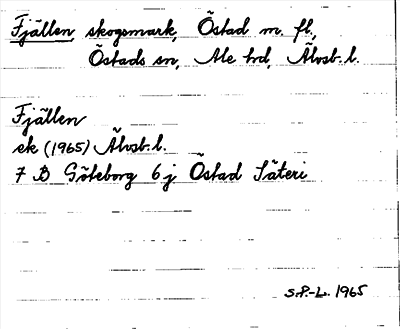 Fjällen, skogsmark, Östad m. fl.,
Östads sn, Ale hd, Älvsb. l.
Fjällen
ek (1965) Älvsb. l.
7 B Göteborg 6 j Östad Säteri
S.P.-L. 1965